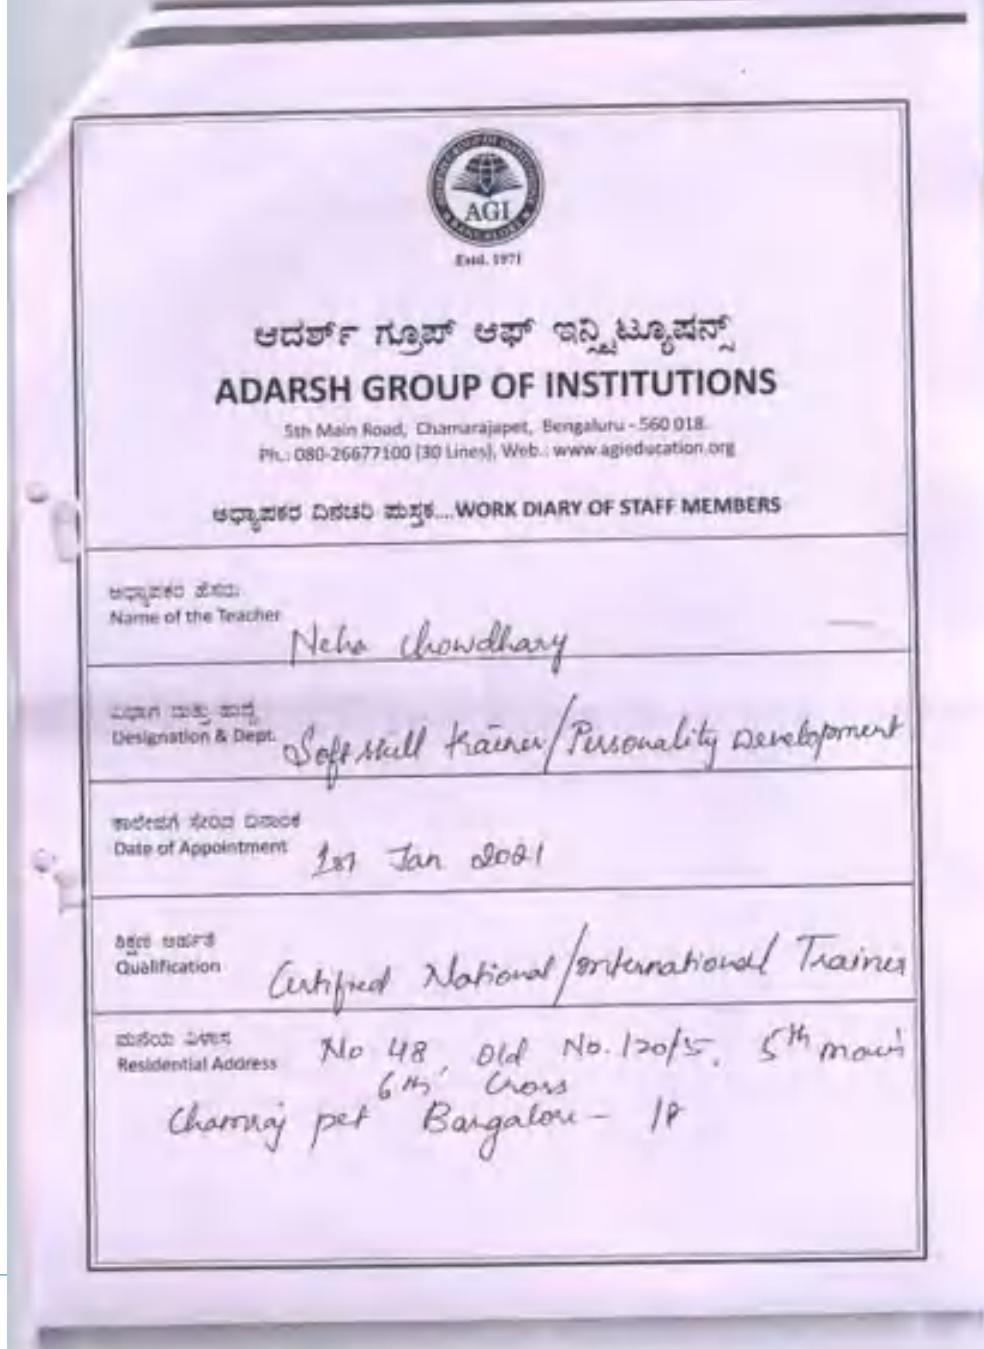 ADARSH GROUP OF INSTITUTIONS
BANGALORE
AGI
Estd. 1971
ಆದರ್ಶ್ ಗ್ರೂಪ್ ಆಫ್ ಇನ್ಸ್ಟಿಟ್ಯೂಷನ್ಸ್
ADARSH GROUP OF INSTITUTIONS
5th Main Road, Chamarajapet, Bengaluru - 560 018.
Ph.: 080-26677100 (30 Lines), Web.: www.agieducation.org
ಅಧ್ಯಾಪಕರ ದಿನಚರಿ ಪುಸ್ತಕ....WORK DIARY OF STAFF MEMBERS
ಅಧ್ಯಾಪಕರ ಹೆಸರು
Name of the Teacher Neha Chowdhary
ವಿಭಾಗ ಮತ್ತು ಹುದ್ದೆ
Designation & Dept. Soft skill trainer/Personality Development
ಕಾಲೇಜಿಗೆ ಸೇರಿದ ದಿನಾಂಕ
Date of Appointment 1st Jan 2021
ಶಿಕ್ಷಣ ಅರ್ಹತೆ
Qualification Certified National/International Trainer
ಮನೆಯ ವಿಳಾಸ
Residential Address No 48, Old No. 120/5, 5th main
6th Cross
Chamraj pet Bangalore - 18